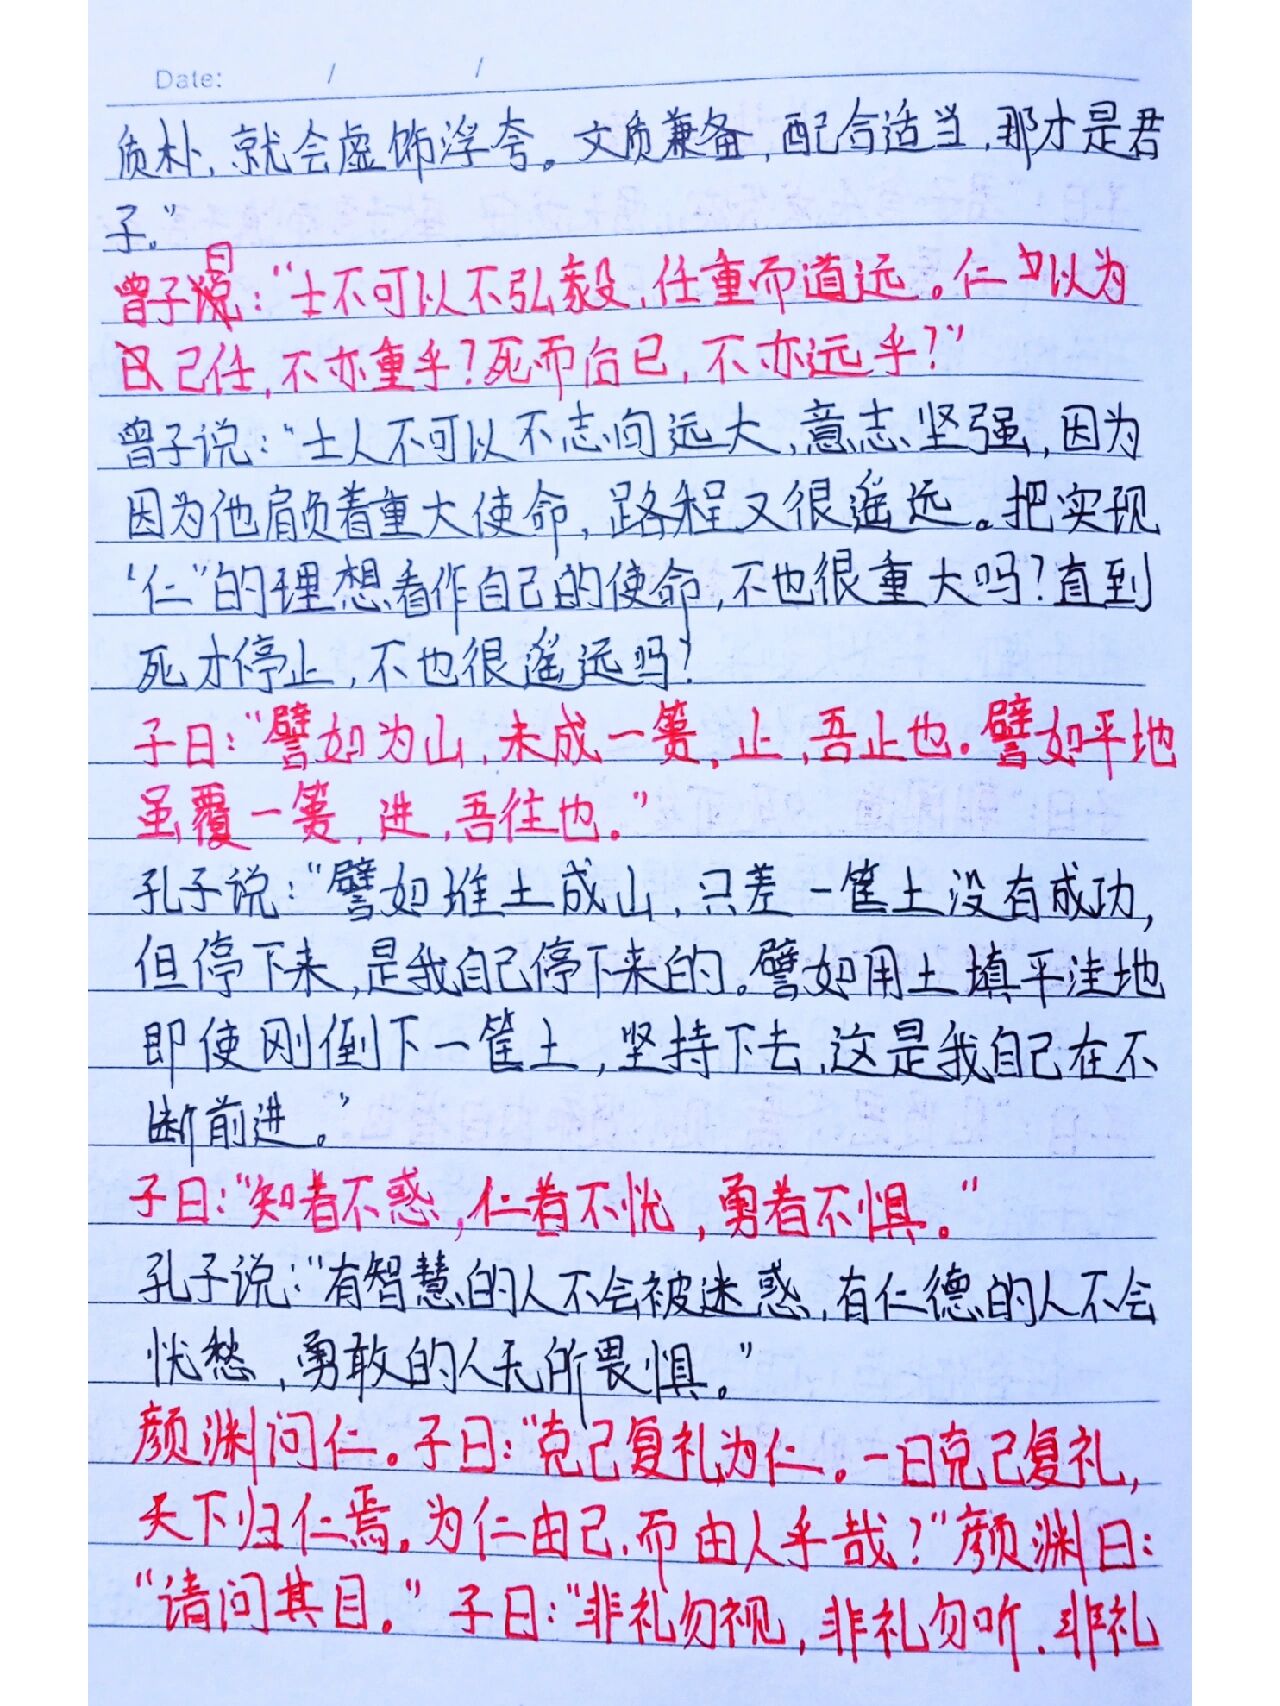 Date: / /
质朴，就会虚饰浮夸。文质兼备，配合适当，那才是君
子。”
曰
曾子：“士不可以不弘毅，任重而道远。仁以为
己任，不亦重乎？死而后已，不亦远乎？”
曾子说：“士人不可以不志向远大，意志坚强，因为
因为他肩负着重大使命，路程又很遥远。把实现
‘仁’的理想看作自己的使命，不也很重大吗？直到
死才停止，不也很遥远吗？
子曰：“譬如为山，未成一篑，止，吾止也。譬如平地
虽覆一篑，进，吾往也。”
孔子说：“譬如堆土成山，只差一筐土没有成功，
但停下来，是我自己停下来的。譬如用土填平洼地
即使刚倒下一筐土，坚持下去，这是我自己在不
断前进。”
子曰：“知者不惑，仁者不忧，勇者不惧。”
孔子说：“有智慧的人不会被迷惑，有仁德的人不会
忧愁，勇敢的人无所畏惧。”
颜渊问仁。子曰：“克己复礼为仁。一日克己复礼，
天下归仁焉。为仁由己，而由人乎哉？”颜渊曰：
“请问其目。”子曰：“非礼勿视，非礼勿听，非礼